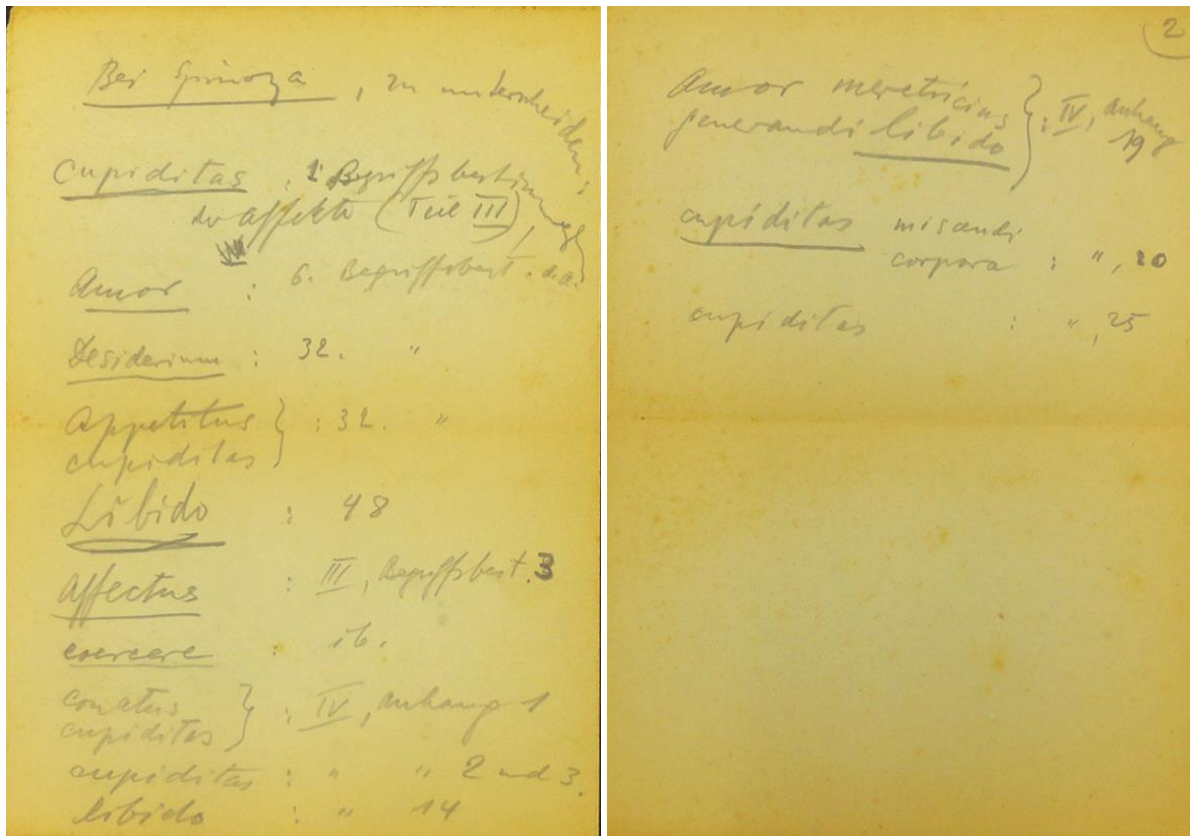 Bei Spinoza, zu unterscheiden:
Cupiditas, 1 Begriffsbestimmung
der Affekte (Teil III),
Amor : 6. Begriffsbest. d. A.
Desiderium : 32. "
Appetitus
cupiditas } : 32. "
Libido : 48
Affectus : III, Begriffsbest. 3
coercere : ib.
conatus
cupiditas } : IV, Anhang 1
cupiditas : " " 2 und 3.
libido : " 14
2
Amor meretricius
generandi libido } : IV, Anhang
19
cupiditas miscendi
corpora : ", 20
cupiditas : ", 25